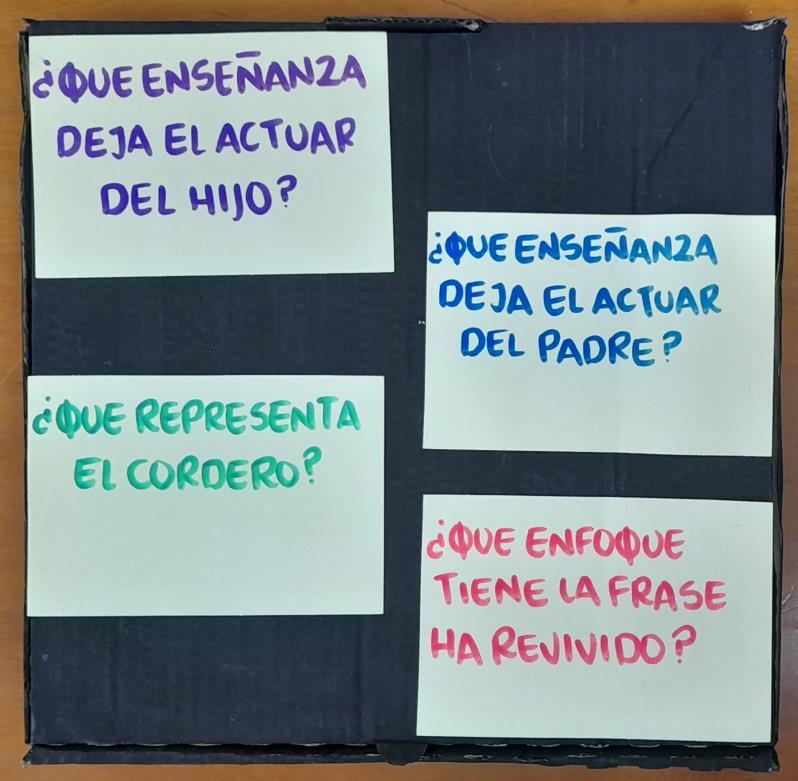 ¿QUE ENSEÑANZA
DEJA EL ACTUAR
DEL HIJO?
¿QUE ENSEÑANZA
DEJA EL ACTUAR
DEL PADRE?
¿QUE REPRESENTA
EL CORDERO?
¿QUE ENFOQUE
TIENE LA FRASE
HA REVIVIDO?